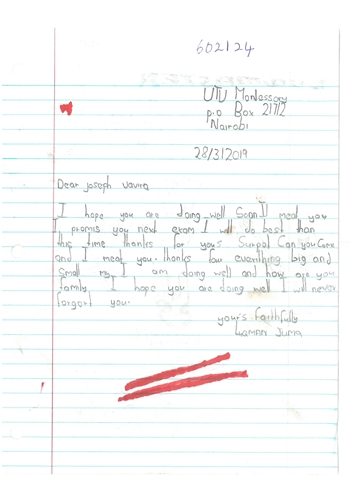 602124
UTU Montessory
p.o Box 21712
Nairobi
28/3/2019
Dear Joseph Vavira
I hope you are doing well Soon Il meat you
I promis you next exam I will do best than
this time thanks for yours Surpot Can you Come
and I meat you. thanks four everithing big and
Small my I am doing well and how are you
family I hope you are doing well I will never
forgort you.
yours faithfully
Juma